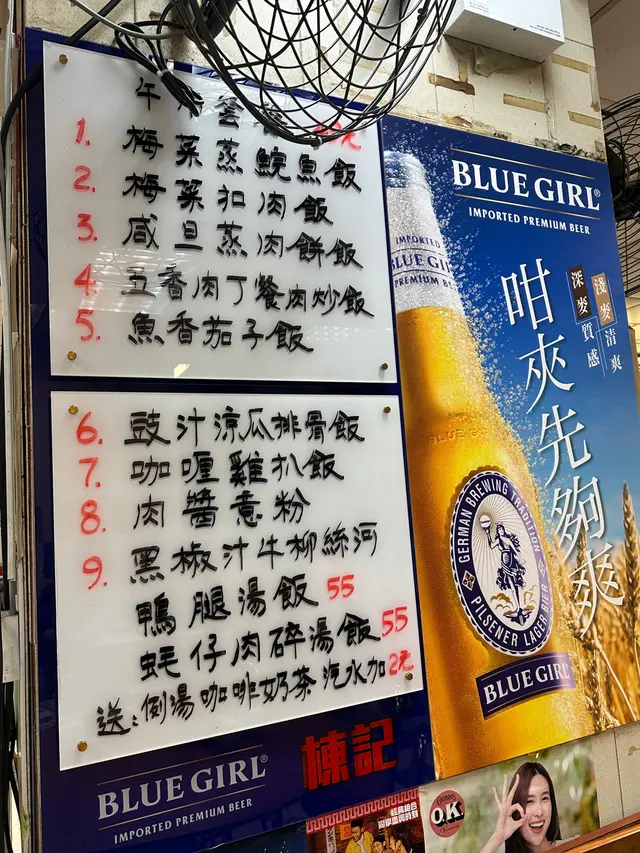 午
1. 梅菜蒸鯇魚飯
2. 梅菜扣肉飯
3. 咸旦蒸肉餅飯
4. 五香肉丁餐肉炒飯
5. 魚香茄子飯
6. 豉汁涼瓜排骨飯
7. 咖喱雞扒飯
8. 肉醬意粉
9. 黑椒汁牛柳絲河
鴨腿湯飯 55
蚝仔肉碎湯飯 55
送：例湯咖啡奶茶 汽水加2元
BLUE GIRL®
IMPORTED PREMIUM BEER
棟記
BLUE GIRL®
IMPORTED PREMIUM BEER
深麥質感
淺麥清爽
啱夾先夠爽
IMPORTED
BLUE GIRL
PREMIUM
BLUE GIRL
GERMAN BREWING TRADITION
PILSENER LAGER BEER
BLUE GIRL
O.K.